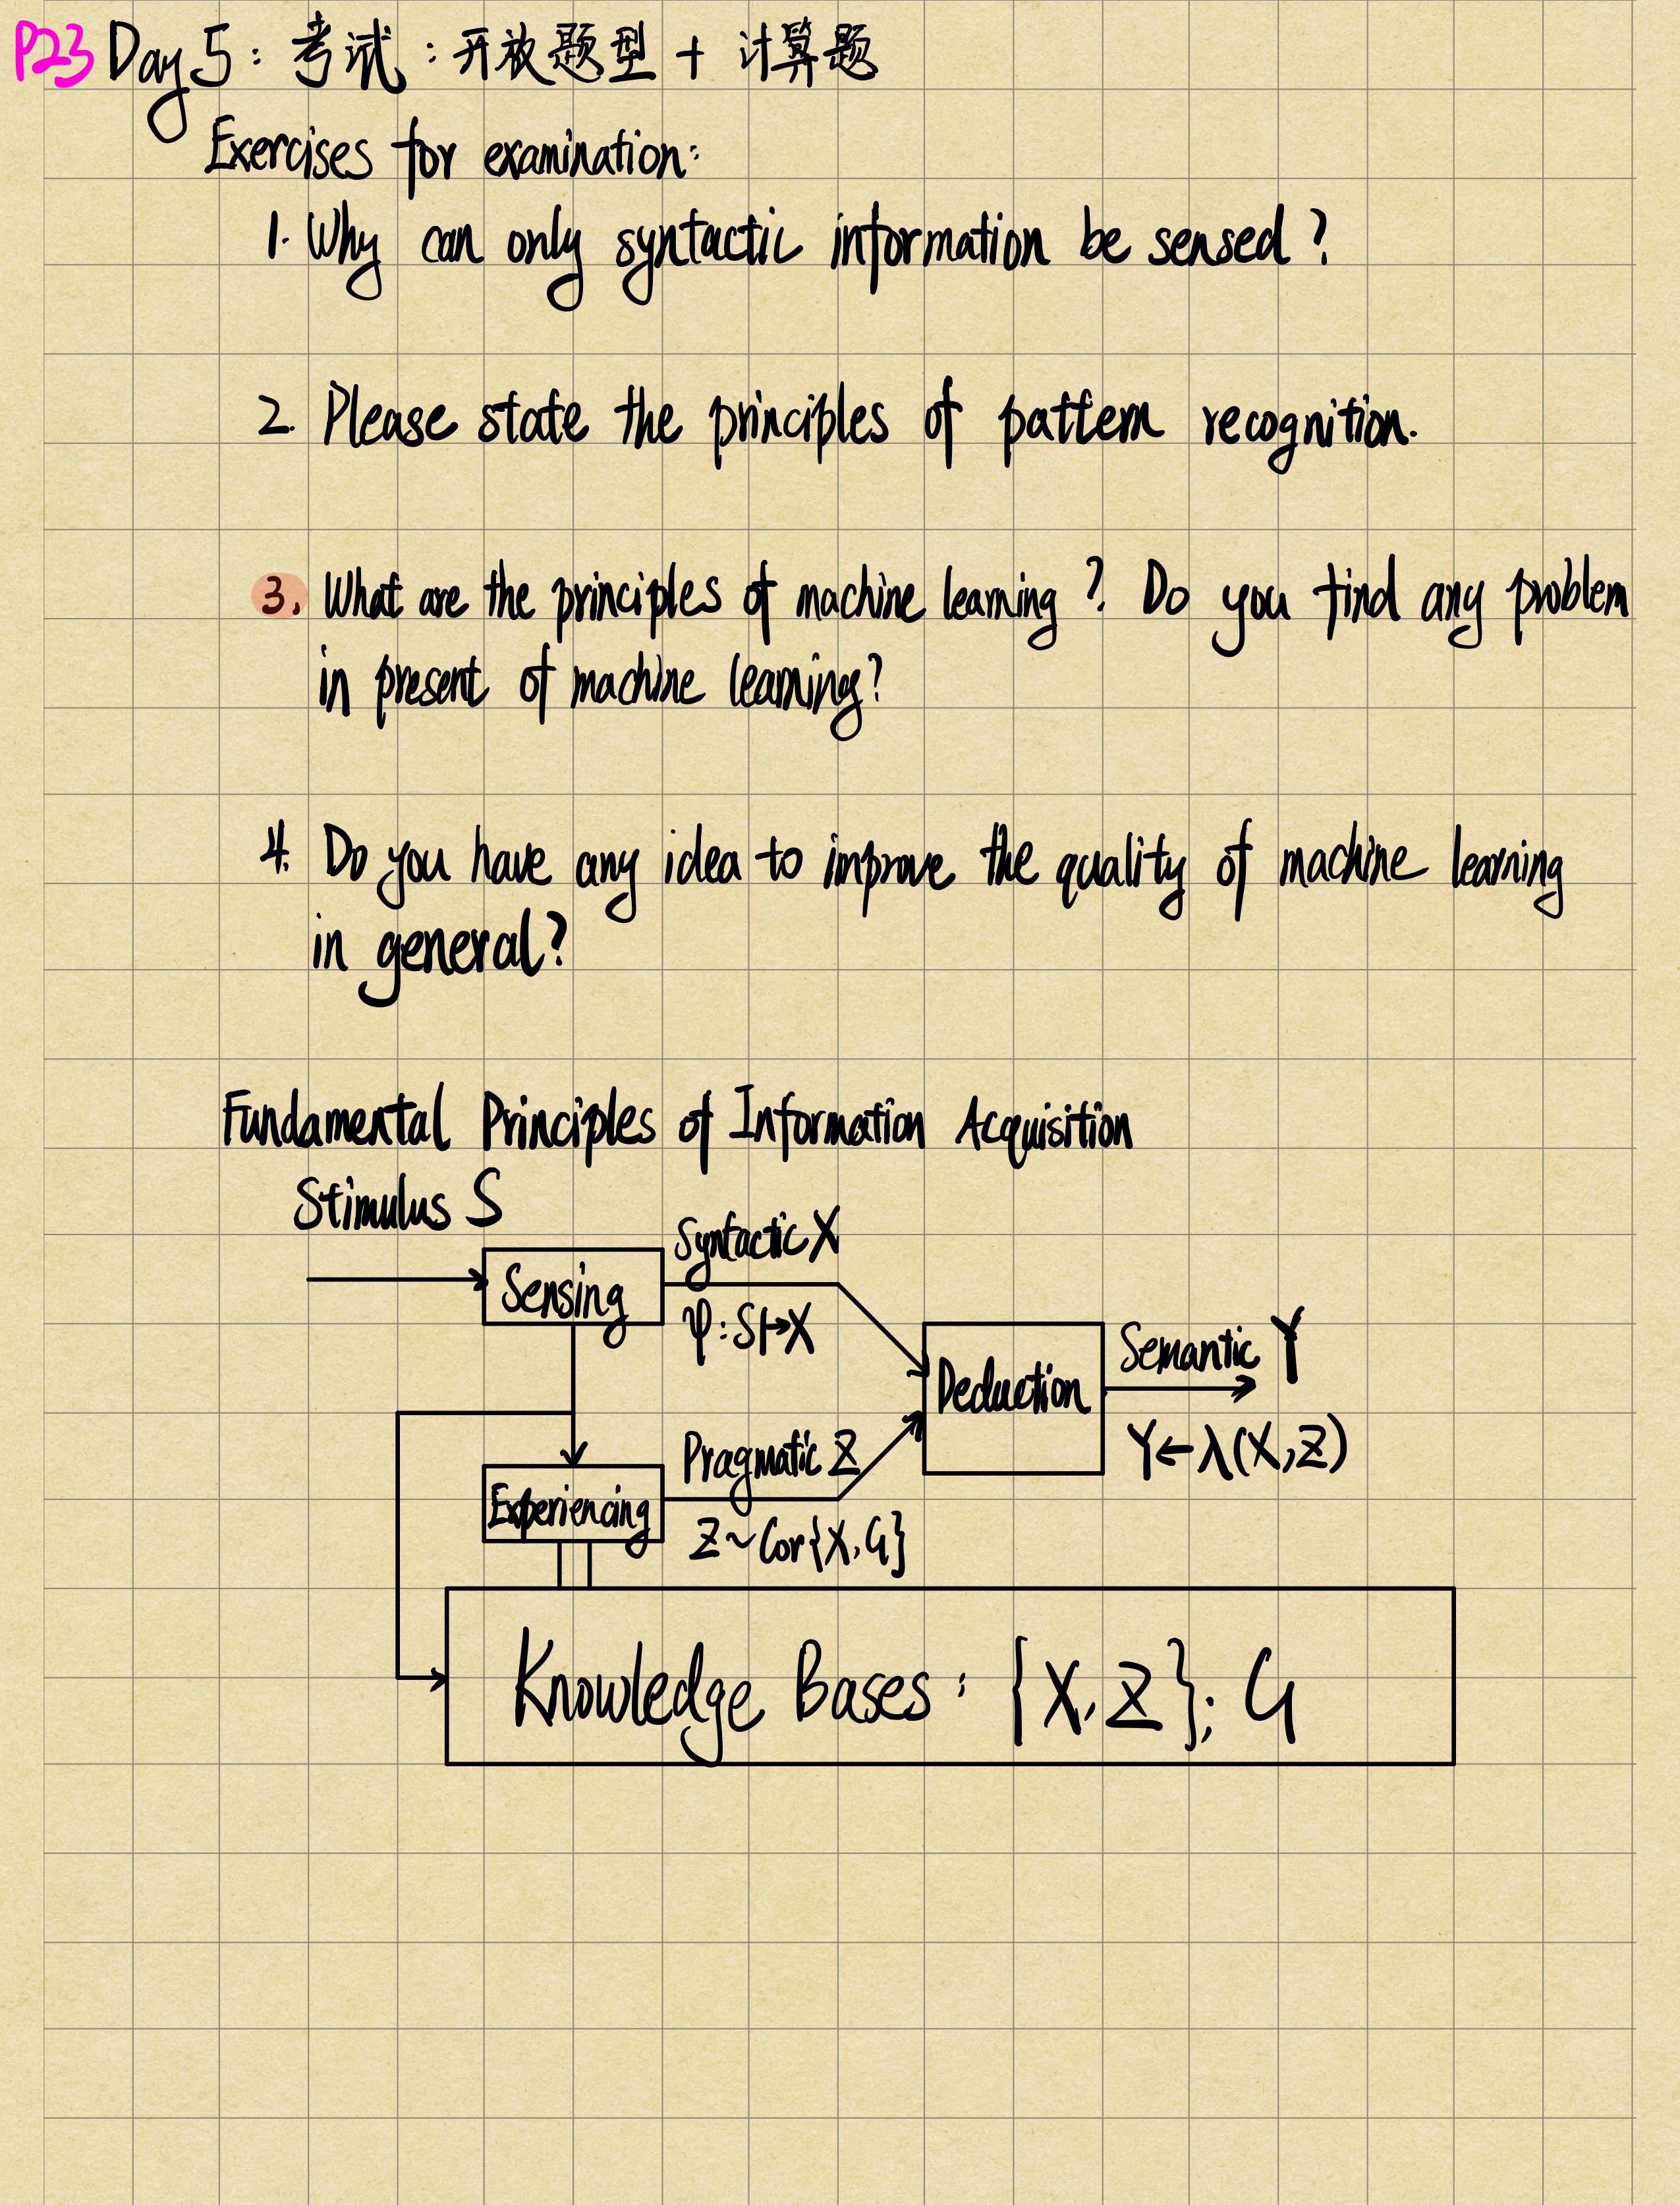 P23 Day 5：考试：开放题型 + 计算题
Exercises for examination:
1. Why can only syntactic information be sensed?
2. Please state the principles of pattern recognition.
3. What are the principles of machine learning? Do you find any problem
in present of machine learning?
4. Do you have any idea to improve the quality of machine learning
in general?
Fundamental Principles of Information Acquisition
Stimulus S
Sensing
Syntactic X
φ: S↦X
Deduction
Semantic Y
Y←λ(X,Z)
Experiencing
Pragmatic Z
Z~Cor{X,G}
Knowledge Bases: {X,Z}; G